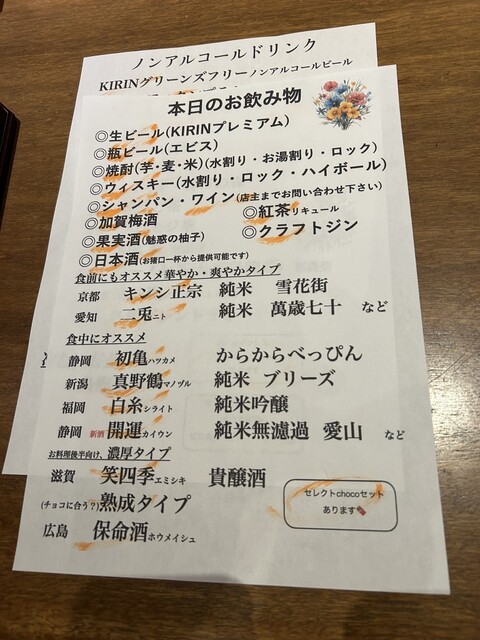 ノンアルコールドリンク
KIRINグリーンズフリーノンアルコールビール
本日のお飲み物
◎生ビール(KIRINプレミアム)
◎瓶ビール(エビス)
◎焼酎(芋・麦・米)(水割り・お湯割り・ロック)
◎ウィスキー(水割り・ロック・ハイボール)
◎シャンパン・ワイン(店主までお問い合わせ下さい)
◎加賀梅酒 ◎紅茶リキュール
◎果実酒(魅惑の柚子) ◎クラフトジン
◎日本酒(お猪口一杯から提供可能です)
食前にもオススメ華やか・爽やかタイプ
京都 キンシ正宗 純米 雪花街
愛知 二兎ニト 純米 萬歳七十 など
食中にオススメ
静岡 初亀ハツカメ からからべっぴん
新潟 真野鶴マノヅル 純米 ブリーズ
福岡 白糸シライト 純米吟醸
静岡 新酒 開運カイウン 純米無濾過 愛山 など
お料理後半向け、濃厚タイプ
滋賀 笑四季エミシキ 貴醸酒
(チョコに合う?)熟成タイプ
広島 保命酒ホウメイシュ
セレクトchocoセット
あります🍫